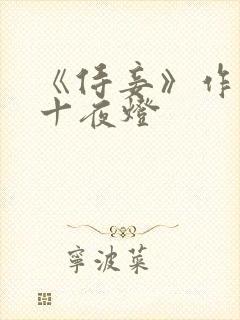 《侍妾》作
十夜燈
寧波菜